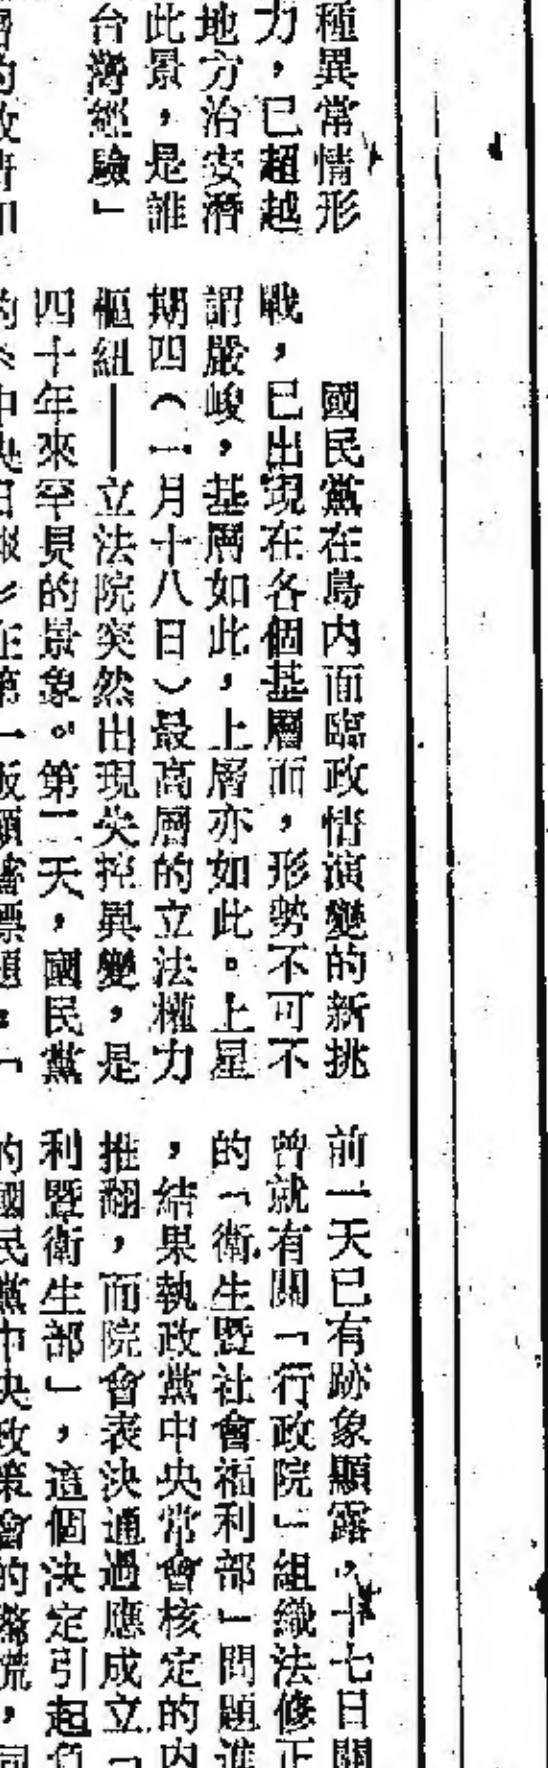 種異常情形
力，已超越
地方治安潛
此景，是誰
台灣經驗」
的政情如
國民黨在島內面臨政情演變的新挑
戰，已出現在各個基層面，形勢不可不
謂嚴峻，基層如此，上層亦如此。上星
期四（一月十八日）最高層的立法權力
樞紐——立法院突然出現失控異變，是
四十年來罕見的景象。第二天，國民黨
的《中央日報》在第一版顯著標題：「
前一天已有跡象顯露，十七日關
曾就有關「行政院」組織法修正
的「衛生暨社會福利部」問題進
，結果執政黨中央常會核定的內
推翻，而院會表決通過應成立「
利暨衛生部」，這個決定引起負
的國民黨中央政策會的驚慌，同